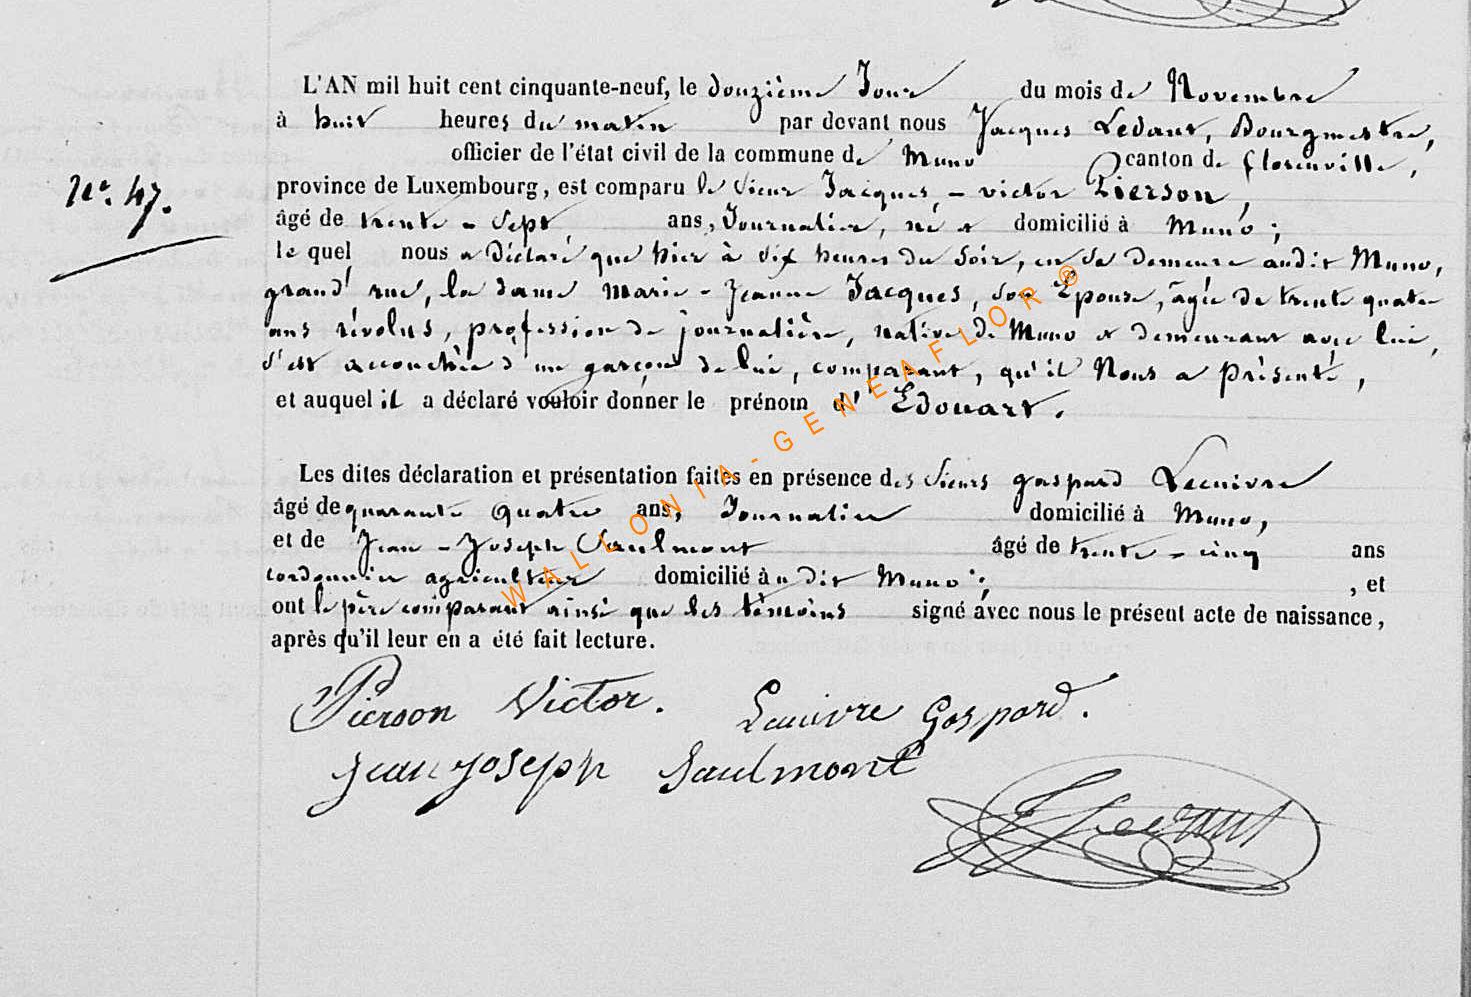 L'AN mil huit cent cinquante-neuf, le douzième Jour du mois de Novembre
à huit heures du matin par devant nous Jacques Ledant, Bourgmestre,
officier de l'état civil de la commune de Muno canton de florenville,
province de Luxembourg, est comparu le Sieur Jacques-victor Pierson,
N°. 47.
âgé de trente-sept ans, Journalier, né et domicilié à Muno;
le quel nous a déclaré que hier à six heures du soir, en sa demeure audit Muno,
grand'rue, la dame Marie-Jeanne Jacques, son Epouse, âgée de trente quatre
ans révolus, profession de journalière, native de Muno et demeurant avec lui,
s'est accouchée d'un garçon de lui, comparant, qu'il Nous a présenté,
et auquel il a déclaré vouloir donner le prénom d'Edouart.
Les dites déclaration et présentation faites en présence des Sieurs gaspard Lecuivre
âgé de quarante quatre ans, Journalier domicilié à Muno,
et de Jean-Joseph Saulmont âgé de trente-cinq ans
cordonnier agriculteur domicilié à udit Muno; , et
ont le père comparant ainsi que les témoins signé avec nous le présent acte de naissance,
après qu'il leur en a été fait lecture.
Pierson Victor. Lecuivre Gaspard.
Jean joseph Saulmont
J Ledant
WALLONIA-GENEAFLOR®